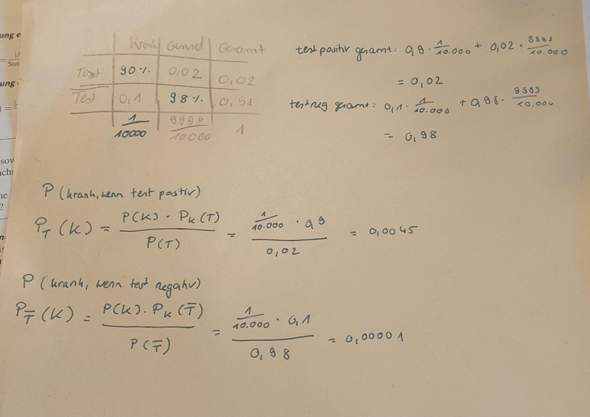 Krank Gesund Gesamt
Test 90% 0,02 0,02
Test̅ 0,1 98% 0,98
1/10000 9999/10000 1
test positiv gesamt: 0,9 · 1/10.000 + 0,02 · 9999/10.000
= 0,02
test neg gesamt: 0,1 · 1/10.000 + 0,98 · 9999/10.000
= 0,98
P (krank, wenn test postiv)
P_T (K) = P(K) · P_K (T) / P(T) = 1/10.000 · 0,9 / 0,02 = 0,0045
P (krank, wenn test negativ)
P_T̅ (K) = P(K) · P_K (T̅) / P(T̅) = 1/10.000 · 0,1 / 0,98 = 0,00001